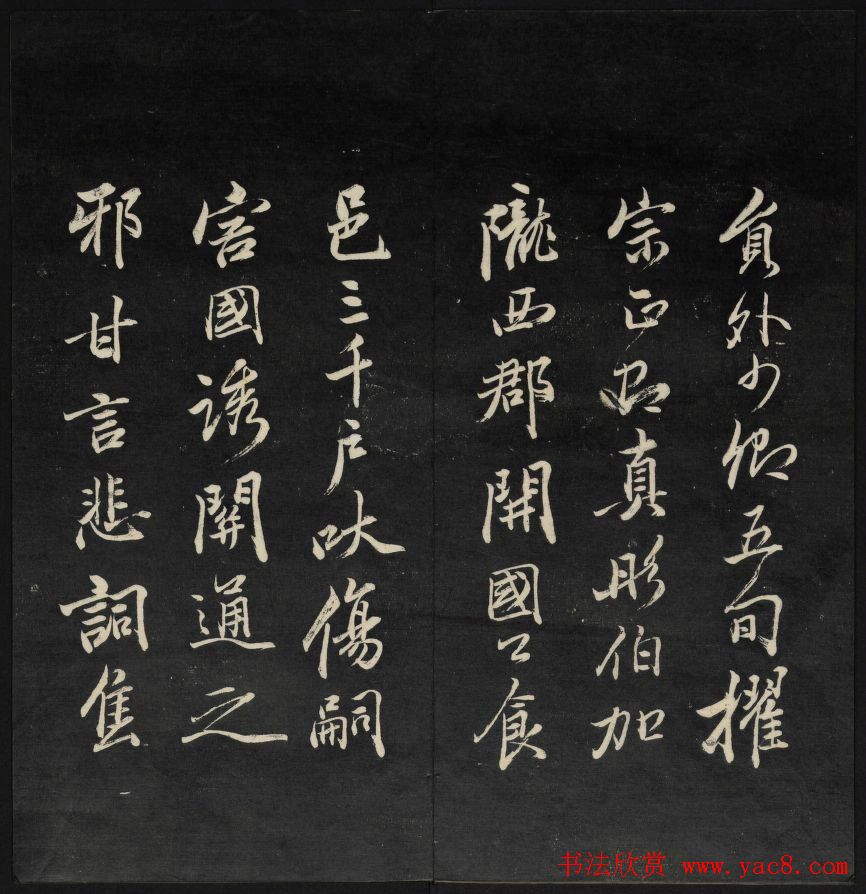 員外少卿五旬擢
宗正卿真彤伯加
隴西郡開國公食
邑三千戶吠傷嗣
害國誘關通之
邪甘言悲詞焦
书法欣赏 www.yac8.com